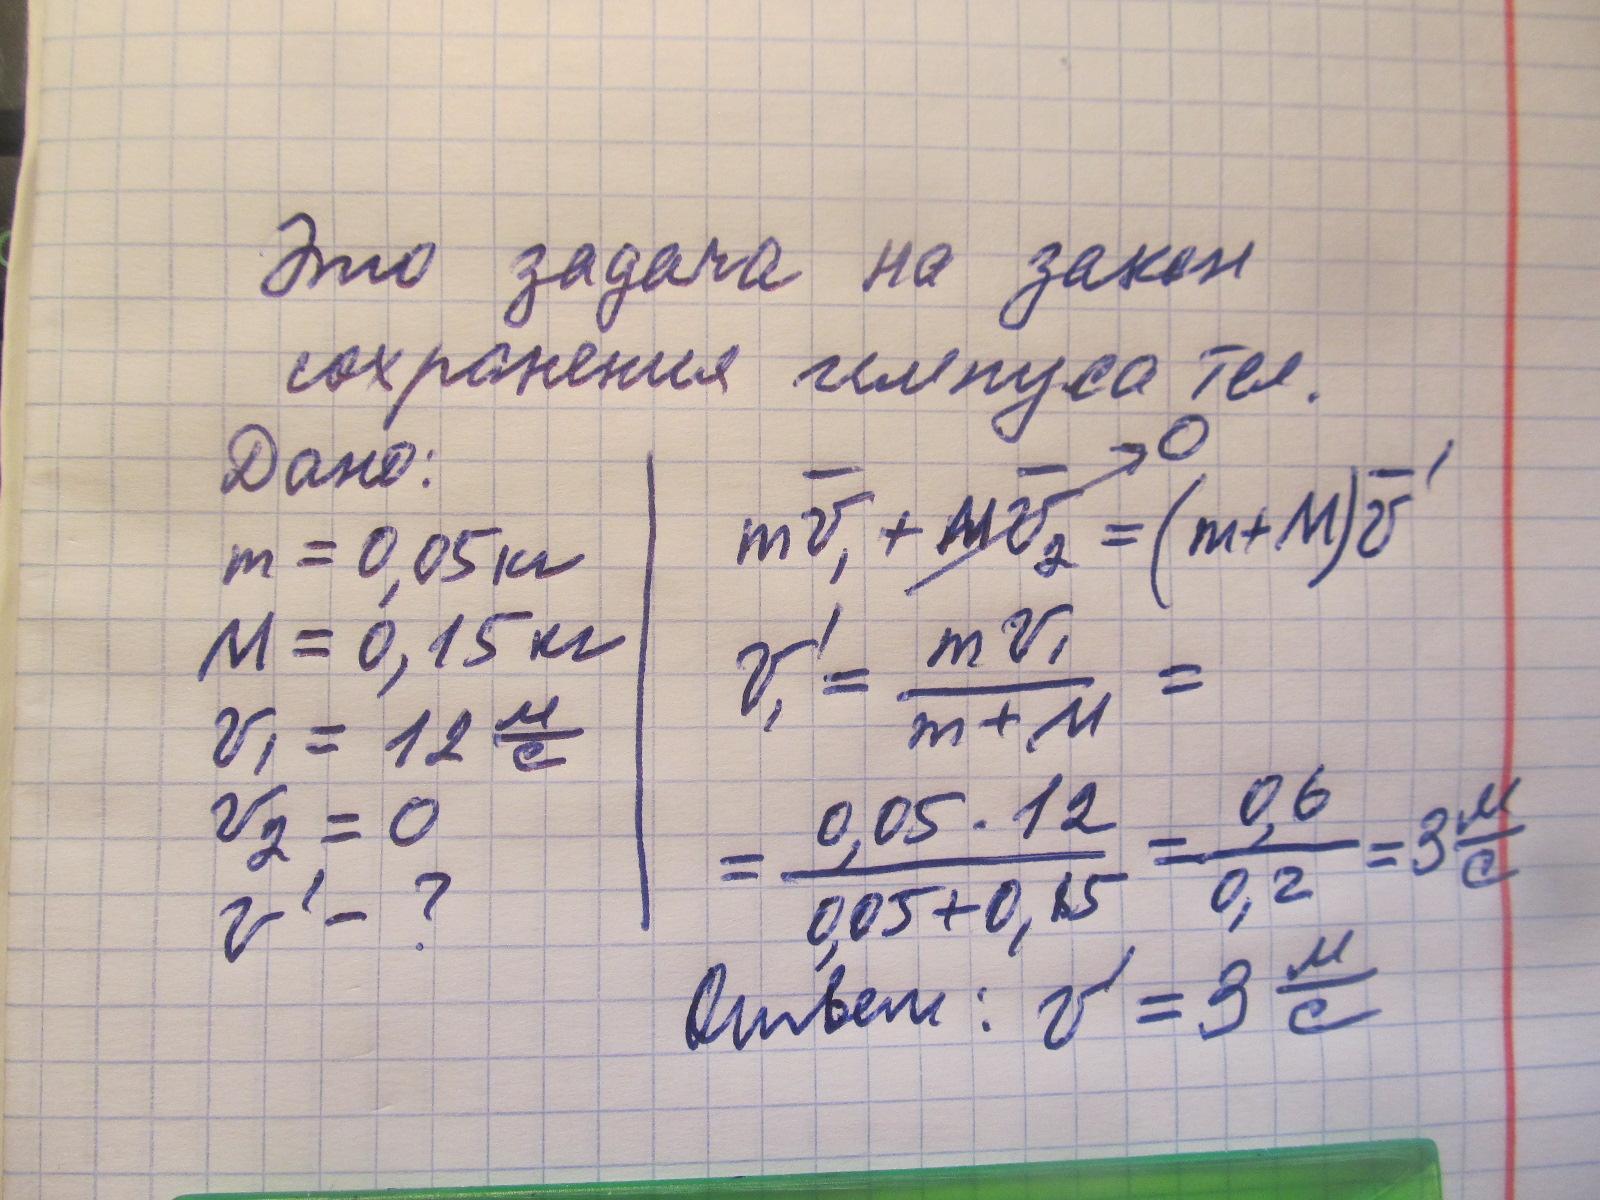 Это задача на закон
сохранения импуса тел.
Дано:
m = 0,05 кг
M = 0,15 кг
v₁ = 12 м/с
v₂ = 0
v' - ?
mv̅₁ + Mv̅₂ → 0 = (m+M)v̅'
v₁' = mv₁/(m+M) =
= (0,05 · 12)/(0,05+0,15) = 0,6/0,2 = 3 м/с
Ответ: v' = 3 м/с